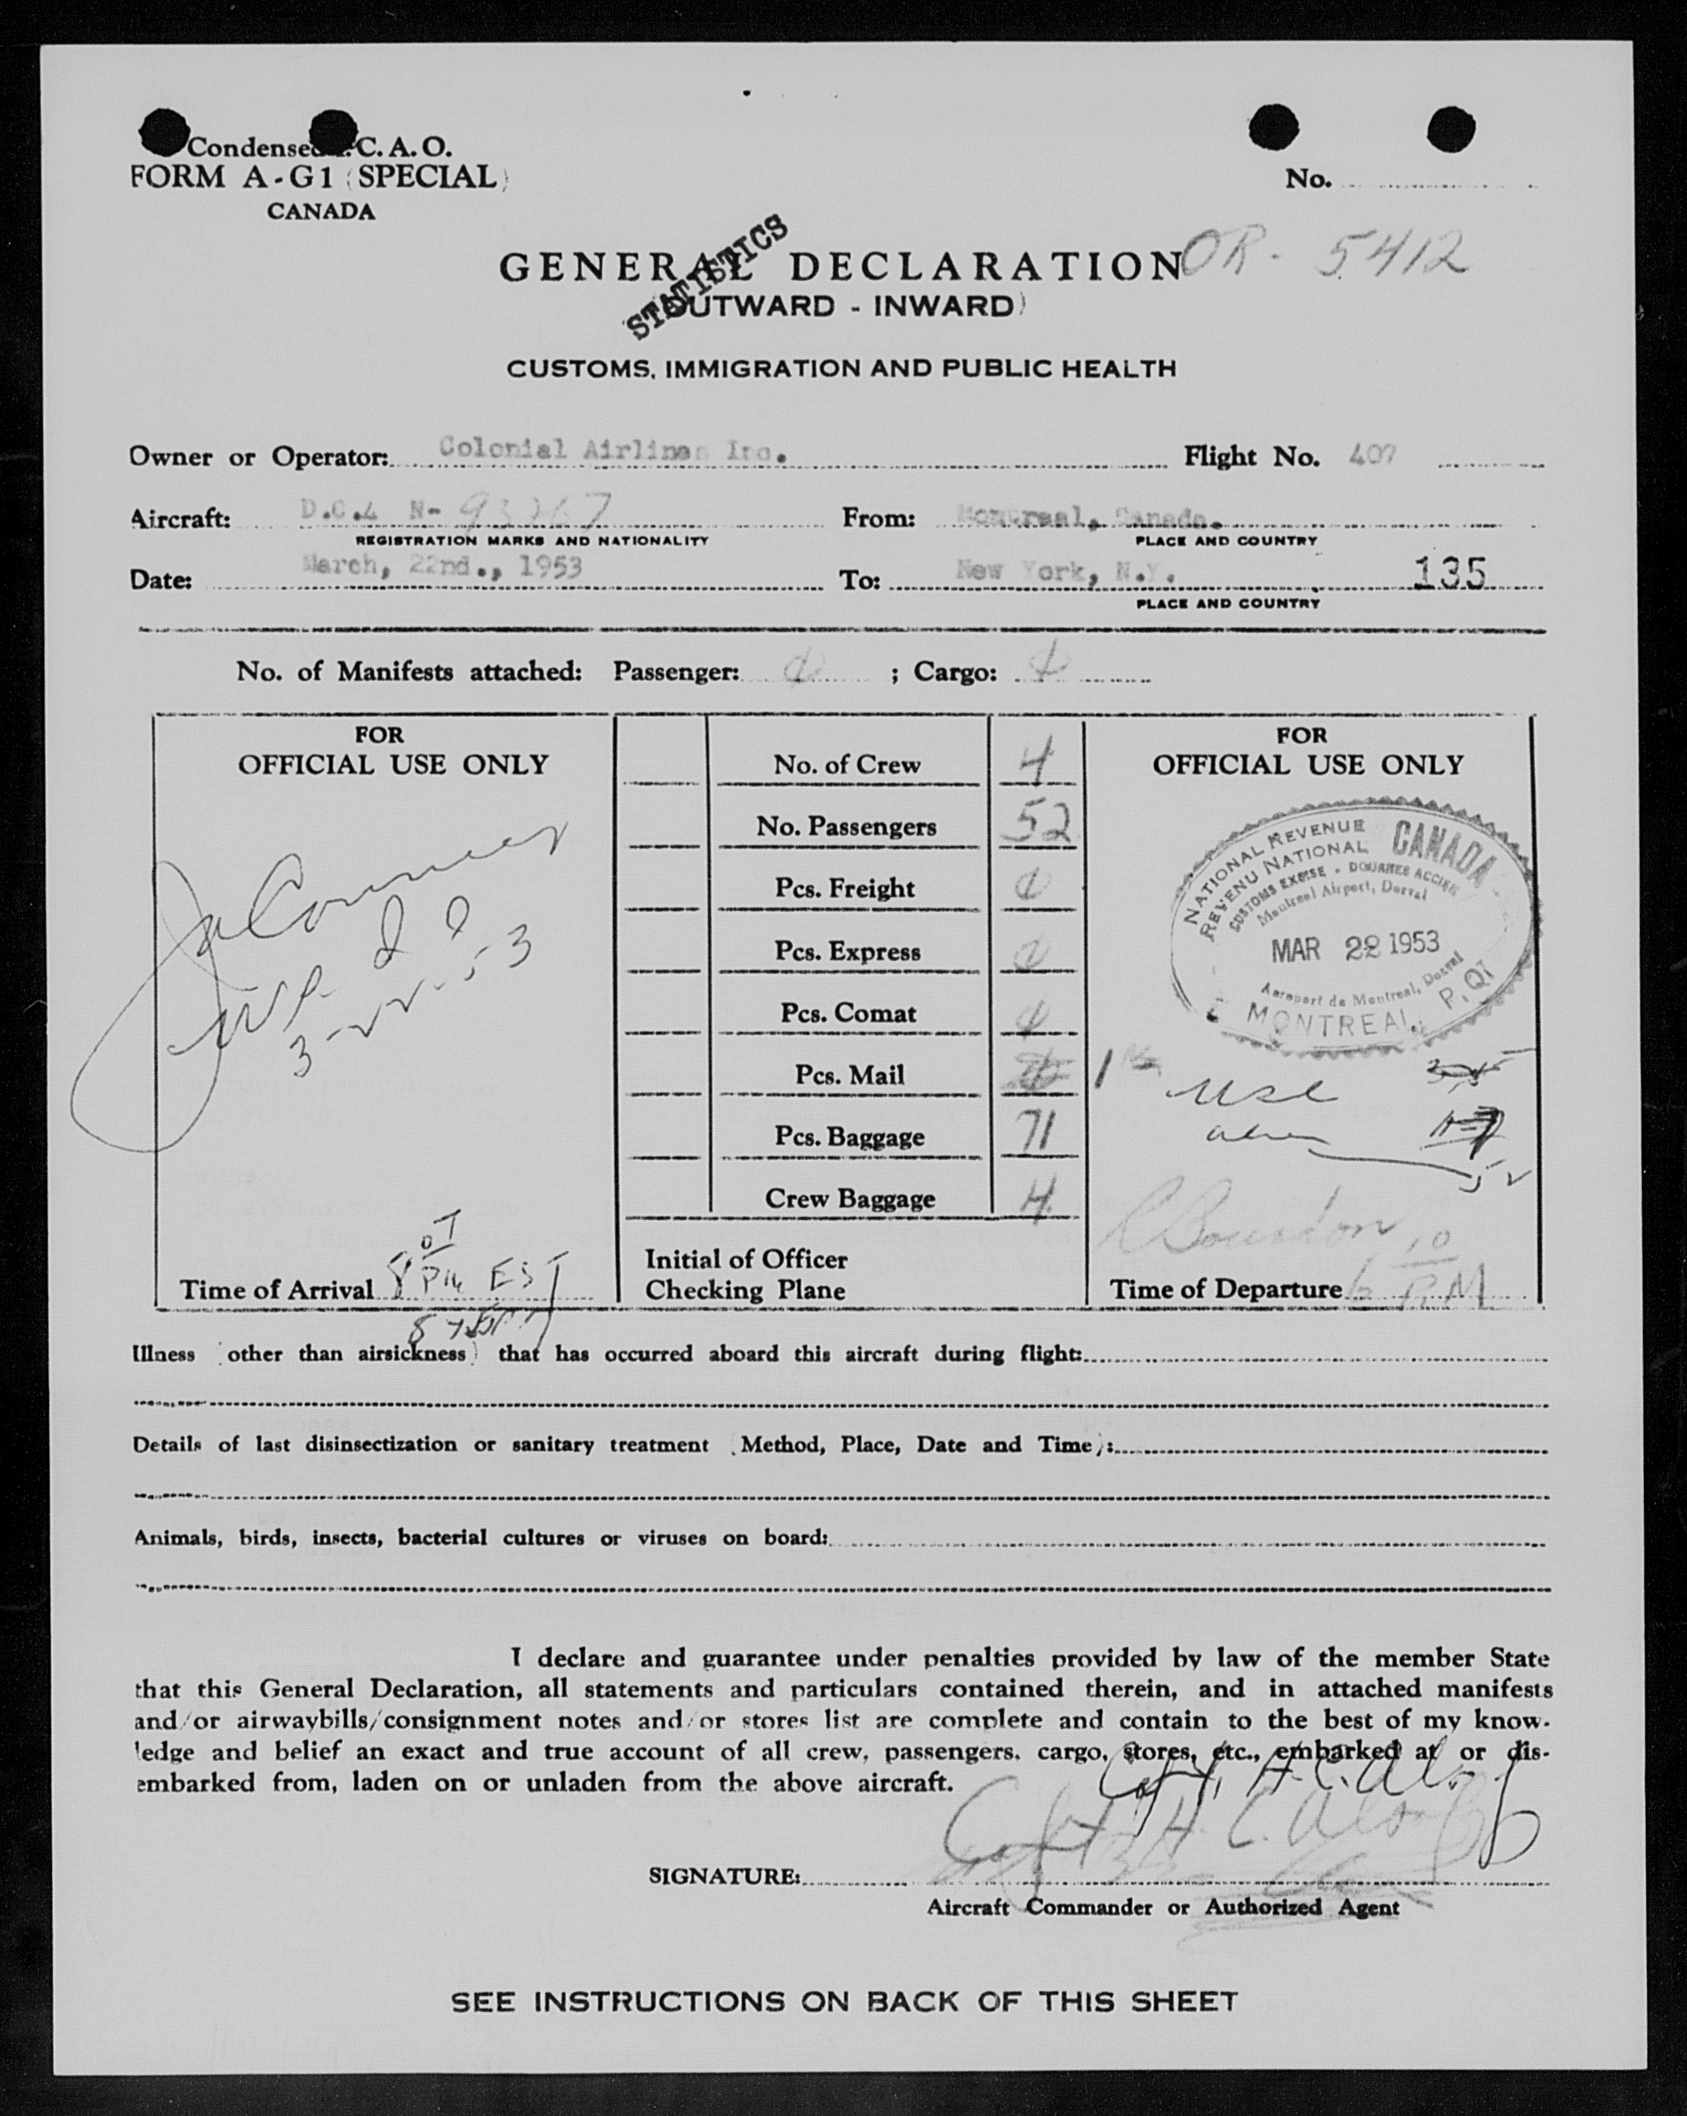 Condensed I.C. A. O.
FORM A-G1 (SPECIAL)
CANADA
No.
GENERAL DECLARATION
OR - 5412
STATISTICS
(OUTWARD - INWARD)
CUSTOMS, IMMIGRATION AND PUBLIC HEALTH
Owner or Operator: Colonial Airlines Inc. Flight No. 407
Aircraft: D.C.4 N- From: Montreal, Canada.
REGISTRATION MARKS AND NATIONALITY PLACE AND COUNTRY
Date: March, 22nd., 1953 To: New York, N.Y. 135
PLACE AND COUNTRY
No. of Manifests attached: Passenger: ; Cargo:
FOR
OFFICIAL USE ONLY
3-22-53
Time of Arrival 8 07 PM EST
No. of Crew 4
No. Passengers 52
Pcs. Freight
Pcs. Express
Pcs. Comat
Pcs. Mail
Pcs. Baggage 71
Crew Baggage 4
Initial of Officer
Checking Plane
FOR
OFFICIAL USE ONLY
NATIONAL REVENUE CANADA
REVENU NATIONAL
CUSTOMS EXCISE - DOUANES ACCISE
Montreal Airport, Dorval
MAR 22 1953
Aeroport de Montreal, Dorval
MONTREAL, P. Q.
52
Time of Departure 6 10 P.M
Illness (other than airsickness) that has occurred aboard this aircraft during flight:
Details of last disinsectization or sanitary treatment (Method, Place, Date and Time):
Animals, birds, insects, bacterial cultures or viruses on board:
I declare and guarantee under penalties provided by law of the member State
that this General Declaration, all statements and particulars contained therein, and in attached manifests
and/or airwaybills/consignment notes and/or stores list are complete and contain to the best of my know-
ledge and belief an exact and true account of all crew, passengers, cargo, stores, etc., embarked at or dis-
embarked from, laden on or unladen from the above aircraft.
SIGNATURE:
Aircraft Commander or Authorized Agent
SEE INSTRUCTIONS ON BACK OF THIS SHEET